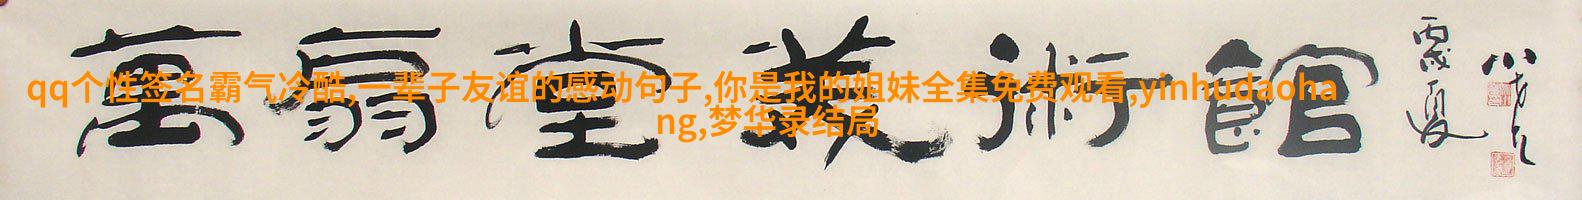 萬扇堂美術館
丙戌夏
qq个性签名霸气冷酷,一辈子友谊的感动句子,你是我的姐妹全集免费观看,yinhudaoha
ng,梦华录结局